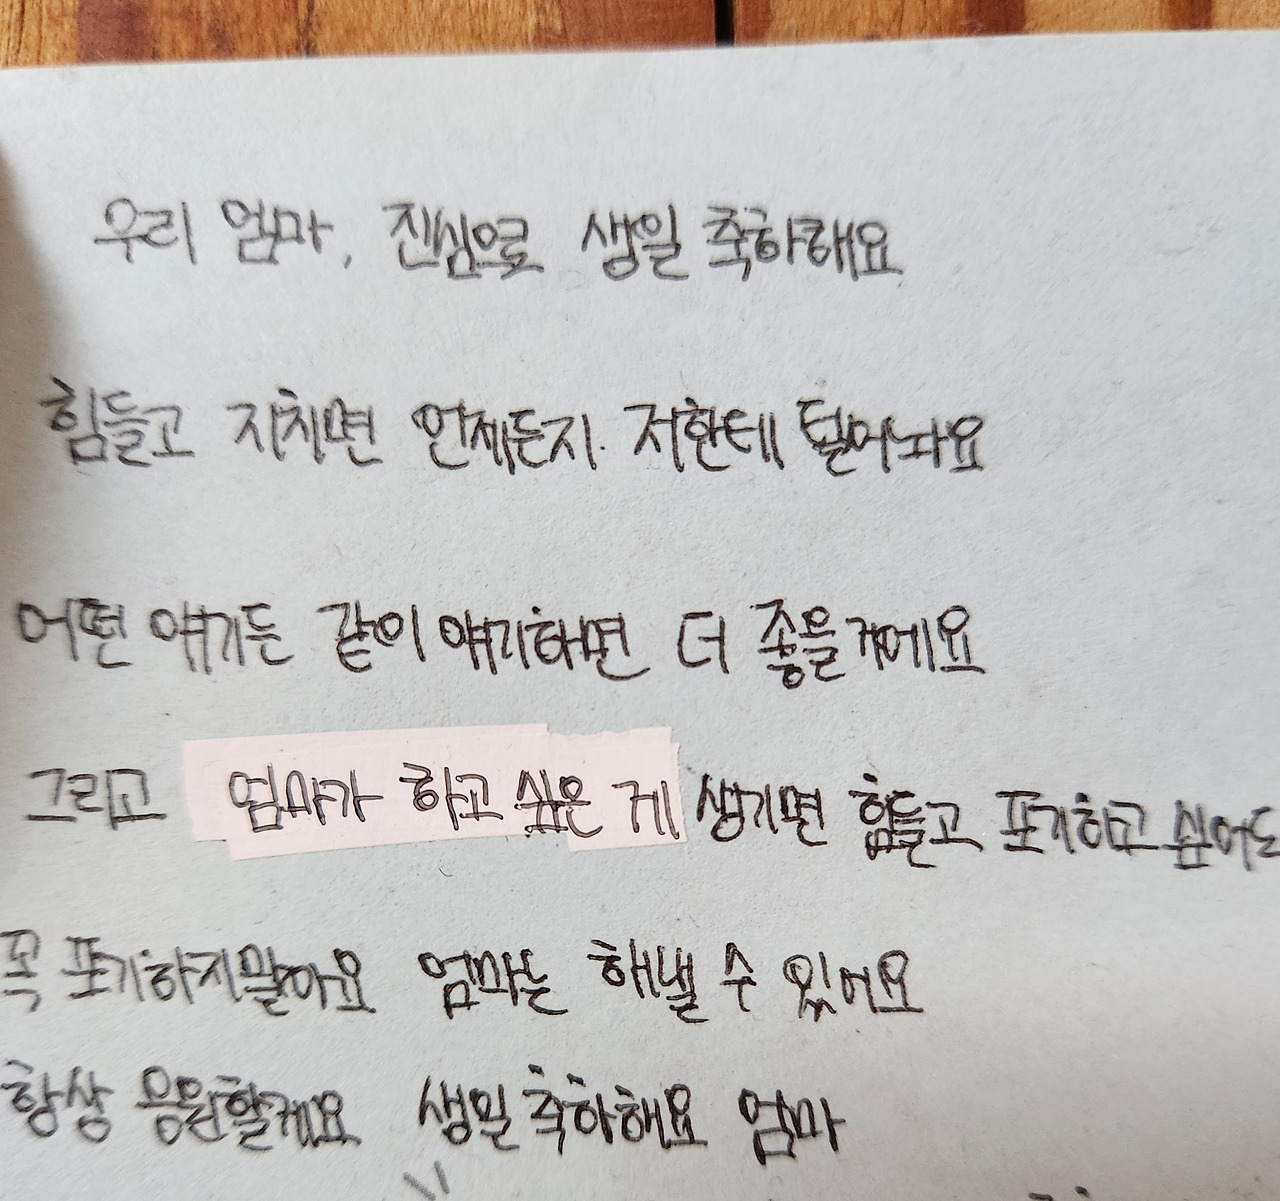 우리 엄마, 진심으로 생일 축하해요
힘들고 지치면 언제든지 저한테 털어놔요
어떤 얘기든 같이 얘기하면 더 좋을거에요
그리고 엄마가 하고 싶은 게 생기면 힘들고 포기하고 싶어도
꼭 포기하지말아요 엄마는 해낼 수 있어요
항상 응원할게요 생일 축하해요 엄마